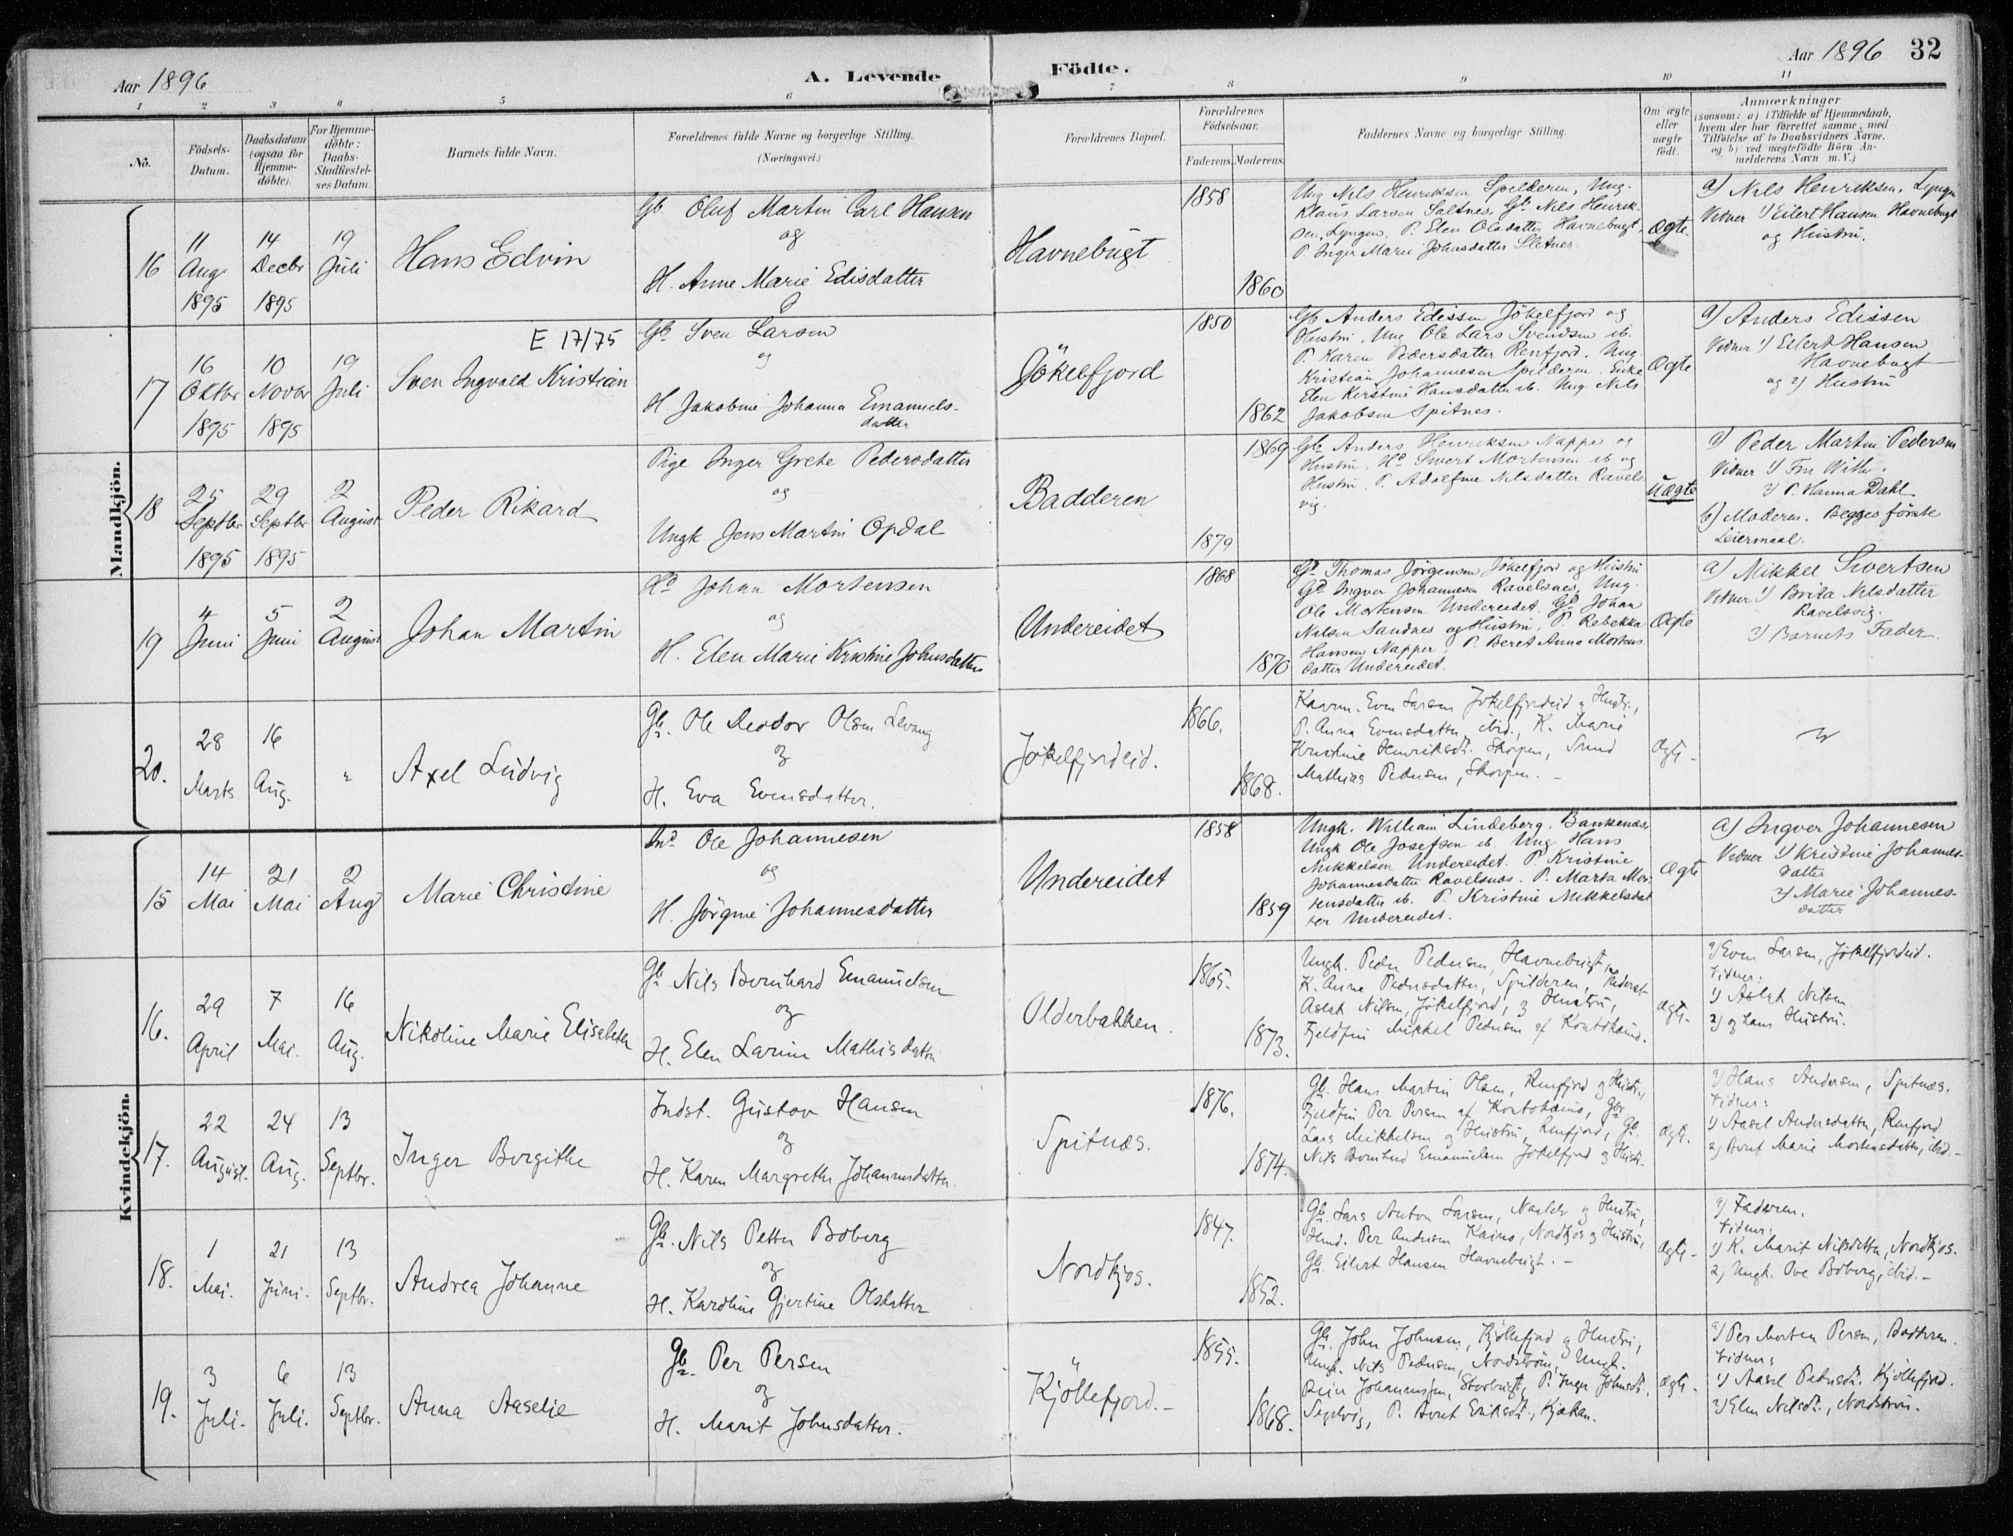 Aar 1896
A. Levende
Födte.
Aar 1896 32
1 2 3 4 5 6 7 8 9 10 11
No.
Födsels-
Datum.
Daabsdatum
(ogsaa for
Hjemme-
döbte).
For Hjemme-
döbte:
Daabs-
Stadfæstel-
ses Datum.
Barnets fulde Navn.
Forældrenes fulde Navne og borgerlige Stilling.
(Næringsvei.)
Forældrenes Bopæl.
Forældrenes
Födselsaar.
Faderens. Moderens.
Faddernes Navne og borgerlige Stilling.
Om ægte
eller
uægte
födt.
Anmærkninger
(saasom: a) i Tilfælde af Hjemmedaab,
hvem der har forrettet samme, med
Tilföielse af to Daabsvidners Navne.
og b) ved uægtefödte Börn An-
melderens Navn m. V.)
Mandkjön.
16
11
Aug
1895
14
Decbr
1895
19
Juli
Hans Edvin
Gb. Oluf Martin Carl Hansen
og
H. Anne Marie Edisdatter
Havnebugt
1858
1860
Ung Nils Henriksen Spilderen, Ung.
Klaus Larsen Saltnes, Gb. Nils Henrik-
sen, Lyngen, P. Elen Olsdatter Havnebugt,
P. Inger Marie Johnsdatter Sletnes.
Ægte.
a) Nils Henriksen, Lyngen
Vidner 1) Eilert Hansen Havnebugt
og Hustru.
17
16
Oktbr
1895
10
Novbr
1895
19
Juli
E 17/75
Sven Ingvald Kristian
Gb Sven Larsen
og
H Jakobine Johanna Emanuels-
datter
Jökelfjord
1850
1862
Gb Anders Edissen Jökelfjord og
Hustru, Ung Ole Lars Svendsen ib.
P. Karen Pedersdatter Renfjord. Ung.
Kristian Johannesen Spilderen. Enke
Elen Kerstine Hansdatter ib. Ung Nils
Jakobsen Spitnes.
Ægte
a) Anders Edissen
Vidner 1) Eilert Hansen
Havnebugt
og 2) Hustru
18
25
Septbr
1895
29
Septbr
1895
2
August
Peder Rikard
Pige Inger Grete Pedersdatter
og
Ungk Jens Martin Opdal
Badderen
1869
1879
Gb Anders Henriksen Napper og
Hustru, Hd Sivert Mortensen ib og
Hustru, P. Adolfine Nilsdatter Ravels-
vig.
Uægte
a) Peder Martin Pedersen
Vidner 1) Fru With.
2) P. Hanna Dahl
b) Moderen. Begges förste
Leiermaal.
19
4
Juni
5
Juni
2
August
Johan Martin
Hd Johan Mortensen
og
H. Elen Marie Kristine Johnsdatter
Undereidet
1868
1870
Gb Thomas Jörgensen Jökelfjord og Hustru
Gb Ingver Johannesen Ravelsnes, Ung.
Ole Mortensen Undereidet. Gb Johan
Nilsen Sandnes og Hustru, P. Rebekka
Hansen Napper, P. Beret Anna Mortens
datter Undereidet.
Ægte
a) Mikkel Sivertsen
Vidner 1) Brita Nilsdatter
Ravelsvig.
2) Barnets Fader
20.
28
Marts
16
Aug.
"
Axel Ludvig
Gb. Ole Deodor Olsen Levang
og
H. Eva Evensdatter.
Jökelfjordeid.
1866.
1868.
Even Larsen Jökelfjordeid og Hustr.,
P. Anna Evensdatter, ibid., K. Marie
Kristine Henriksdt. Skorpen, Svend
Mathias Pedersen, Skorpen. -
Ægte -
Kvindekjön.
15
14
Mai
21
Mai
2
Aug
Marie Christine
Ind. Ole Johannesen
og
H. Jörgine Johannesdatter
Undereidet
1858
1859
Ungk. William Lindeberg. Bankenæs
Ungk Ole Josefsen ib. Ung Hans
Mikkelsen Undereidet. P. Kristine
Johannesdatter Ravelsnæs. P. Marta Mor-
tensdatter ib. P. Kristine Mikkelsdat
ter Undereidet.
Ægte
a) Ingver Johannesen
Vidner 1) Kristine Johannes-
datter
2) Marie Johannes-
datter
16.
29
April
7
Mai.
16
Aug.
Nikoline Marie Elisabeth
Gb Nils Bernhard Emanuelsen
og
H. Elen Larine Mathisdatter
Olderbakken.
1865.
1873.
Ungk. Peder Pedersen, Havnebugt,
K. Anne Pedersdatter, Spilderen,
Aslak Nilsen, Jökelfjord, og Hustru,
Fjeldfin Mikkel Pedersen af Koutokeino.
Ægte.
a) Even Larsen, Jökelfjordeid.
Vidner:
1) Aslak Nilsen
2) og hans Hustru.
17.
22
August.
24
Aug.
13
Septbr.
Inger Bergithe
Indst. Gustav Hansen
og
H. Karen Margrethe Johannesdatter.
Spitnæs.
1876.
1874.
Gb. Hans Martin Olsen, Renfjord og Hustr.,
Fjeldfin Per Persen af Koutokeino, Gbr.
Lars Mikkelsen og Hustru, Renfjord, Gb.
Nils Bernhard Emanuelsen Jökelfjord og Hustr.
Ægte.
a) Hans Andersen, Spitnæs.
Vidner:
1) Aasel Andersdatter, Renfjord
2) Beret Marie Mortensdatter, ibid. -
18.
1
Mai.
21
Juni.
13
Septbr.
Andrea Johanne
Gb. Nils Petter Boberg
og
H. Karoline Gjertine Olsdatter
Nordkjos.
1847.
1852.
Gb. Lars Anton Larsen, og Hustru,
Per Andersen Kaino, Nordkjos og Hustru,
Gb. Eilert Hansen Havnebugt. -
Ægte -
a) Faderen.
Vidner:
1) K. Marit Nilsdatter, Nordkjos.
2) Ungk. Ove Boberg, ibid. -
19.
3
Juli.
6
Juli.
13
Septbr.
Anna Aaselie
Gb. Per Persen
og
H. Marit Johnsdatter.
Kjöllefjord. -
1855.
1868.
Gb. John Johnsen, Kjöllefjord og Hustru,
Ungk. Nils Pedersen, Nordström, Ungk.
Johannesen, Storbugt, P. Inger Johnsdt.
Segelvig, P. Beret Eriksdt., Kjækan.
Ægte -
a) Per Morten Persen, Badderen.
Vidner:
1) Aasel Pedersdt. Kjöllefjord.
2) Elen Nilsdt., Nordström.